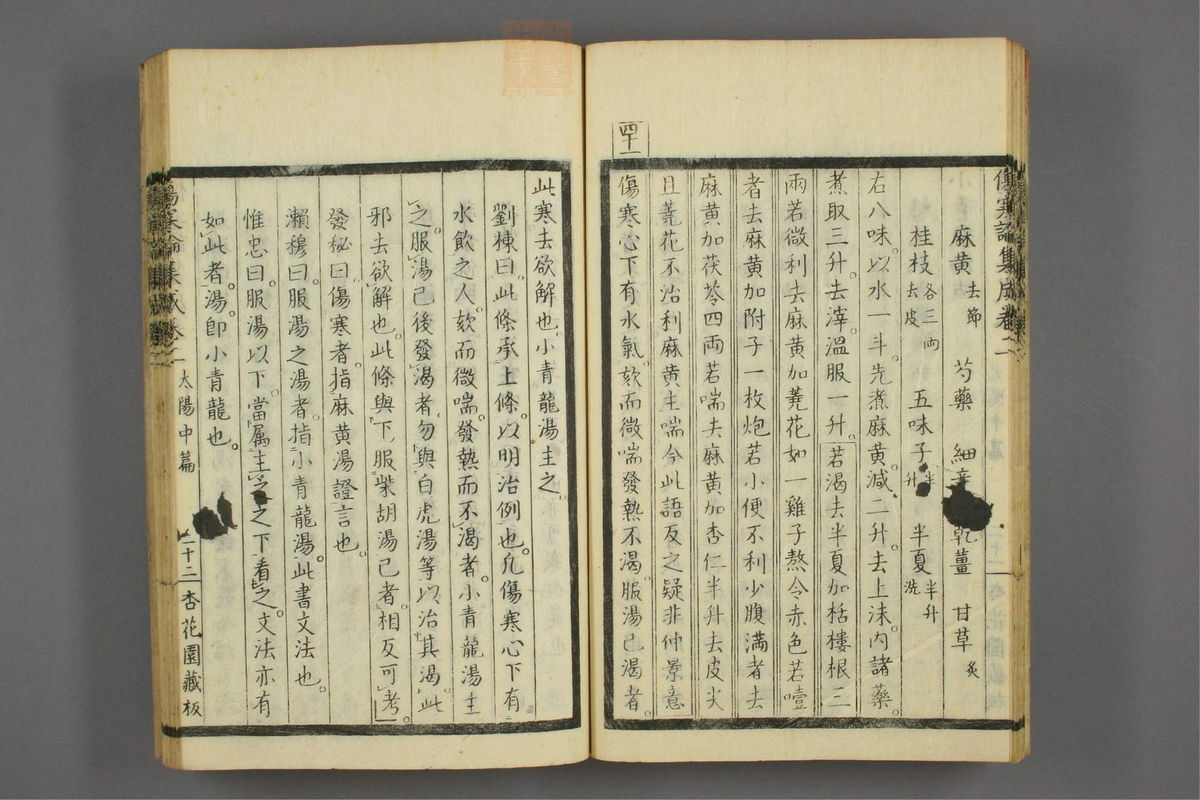 傷寒論集成卷二
麻黃去節 芍藥 細辛 乾薑 甘草炙
桂枝各三兩去皮 五味子半升 半夏半升洗
右八味。以水一斗。先煮麻黃。減二升。去上沫。內諸藥。
煮取三升。去滓。溫服一升。若渴去半夏加栝樓根三
兩若微利去麻黃加蕘花如一雞子熬令赤色若噎
者去麻黃加附子一枚炮若小便不利少腹滿者去
麻黃加茯苓四兩若喘去麻黃加杏仁半升去皮尖
且蕘花不治利麻黃主喘今此語反之疑非仲景意
四十一
傷寒心下有水氣。欬而微喘。發熱不渴。服湯已渴者。
此寒去欲解也。小青龍湯主之。
劉棟曰。此條承上條。以明治例也。凡傷寒心下有
水飲之人。欬而微喘。發熱而不渴者。小青龍湯主
之。服湯已後發渴者。勿與白虎湯等以治其渴。此
邪去欲解也。此條與下服柴胡湯已者。相反可考。
發秘曰。傷寒者。指麻黃湯證言也。
瀨穆曰。服湯之湯者。指小青龍湯。此書文法也。
惟忠曰。服湯以下。當屬主之之下看之。文法亦有
如此者。湯即小青龍也。
傷寒論集成卷二 太陽中篇 二十三 杏花園藏板